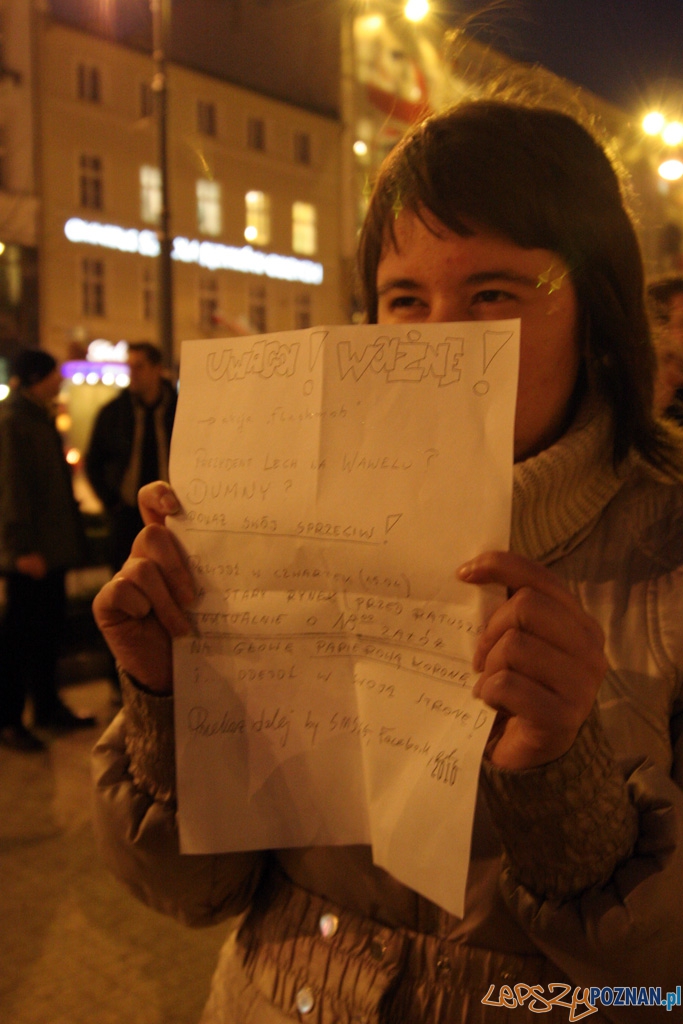 UWAGA! WAŻNE!
→ akcja "Flashmob"
PREZYDENT LECH NA WAWELU?
DUMNY?
POKAŻ SWÓJ SPRZECIW!
PRZYJDŹ W CZWARTEK (15.04)
NA STARY RYNEK PRZED RATUSZ
PUNKTUALNIE O 19:00 ZAŁÓŻ
NA GŁOWĘ PAPIEROWĄ KORONĘ
I... ODEJDŹ W SWOJĄ STRONĘ!
Przekaż dalej by SMS, Facebook,
2010
LEPSZYPOZNAN.pl